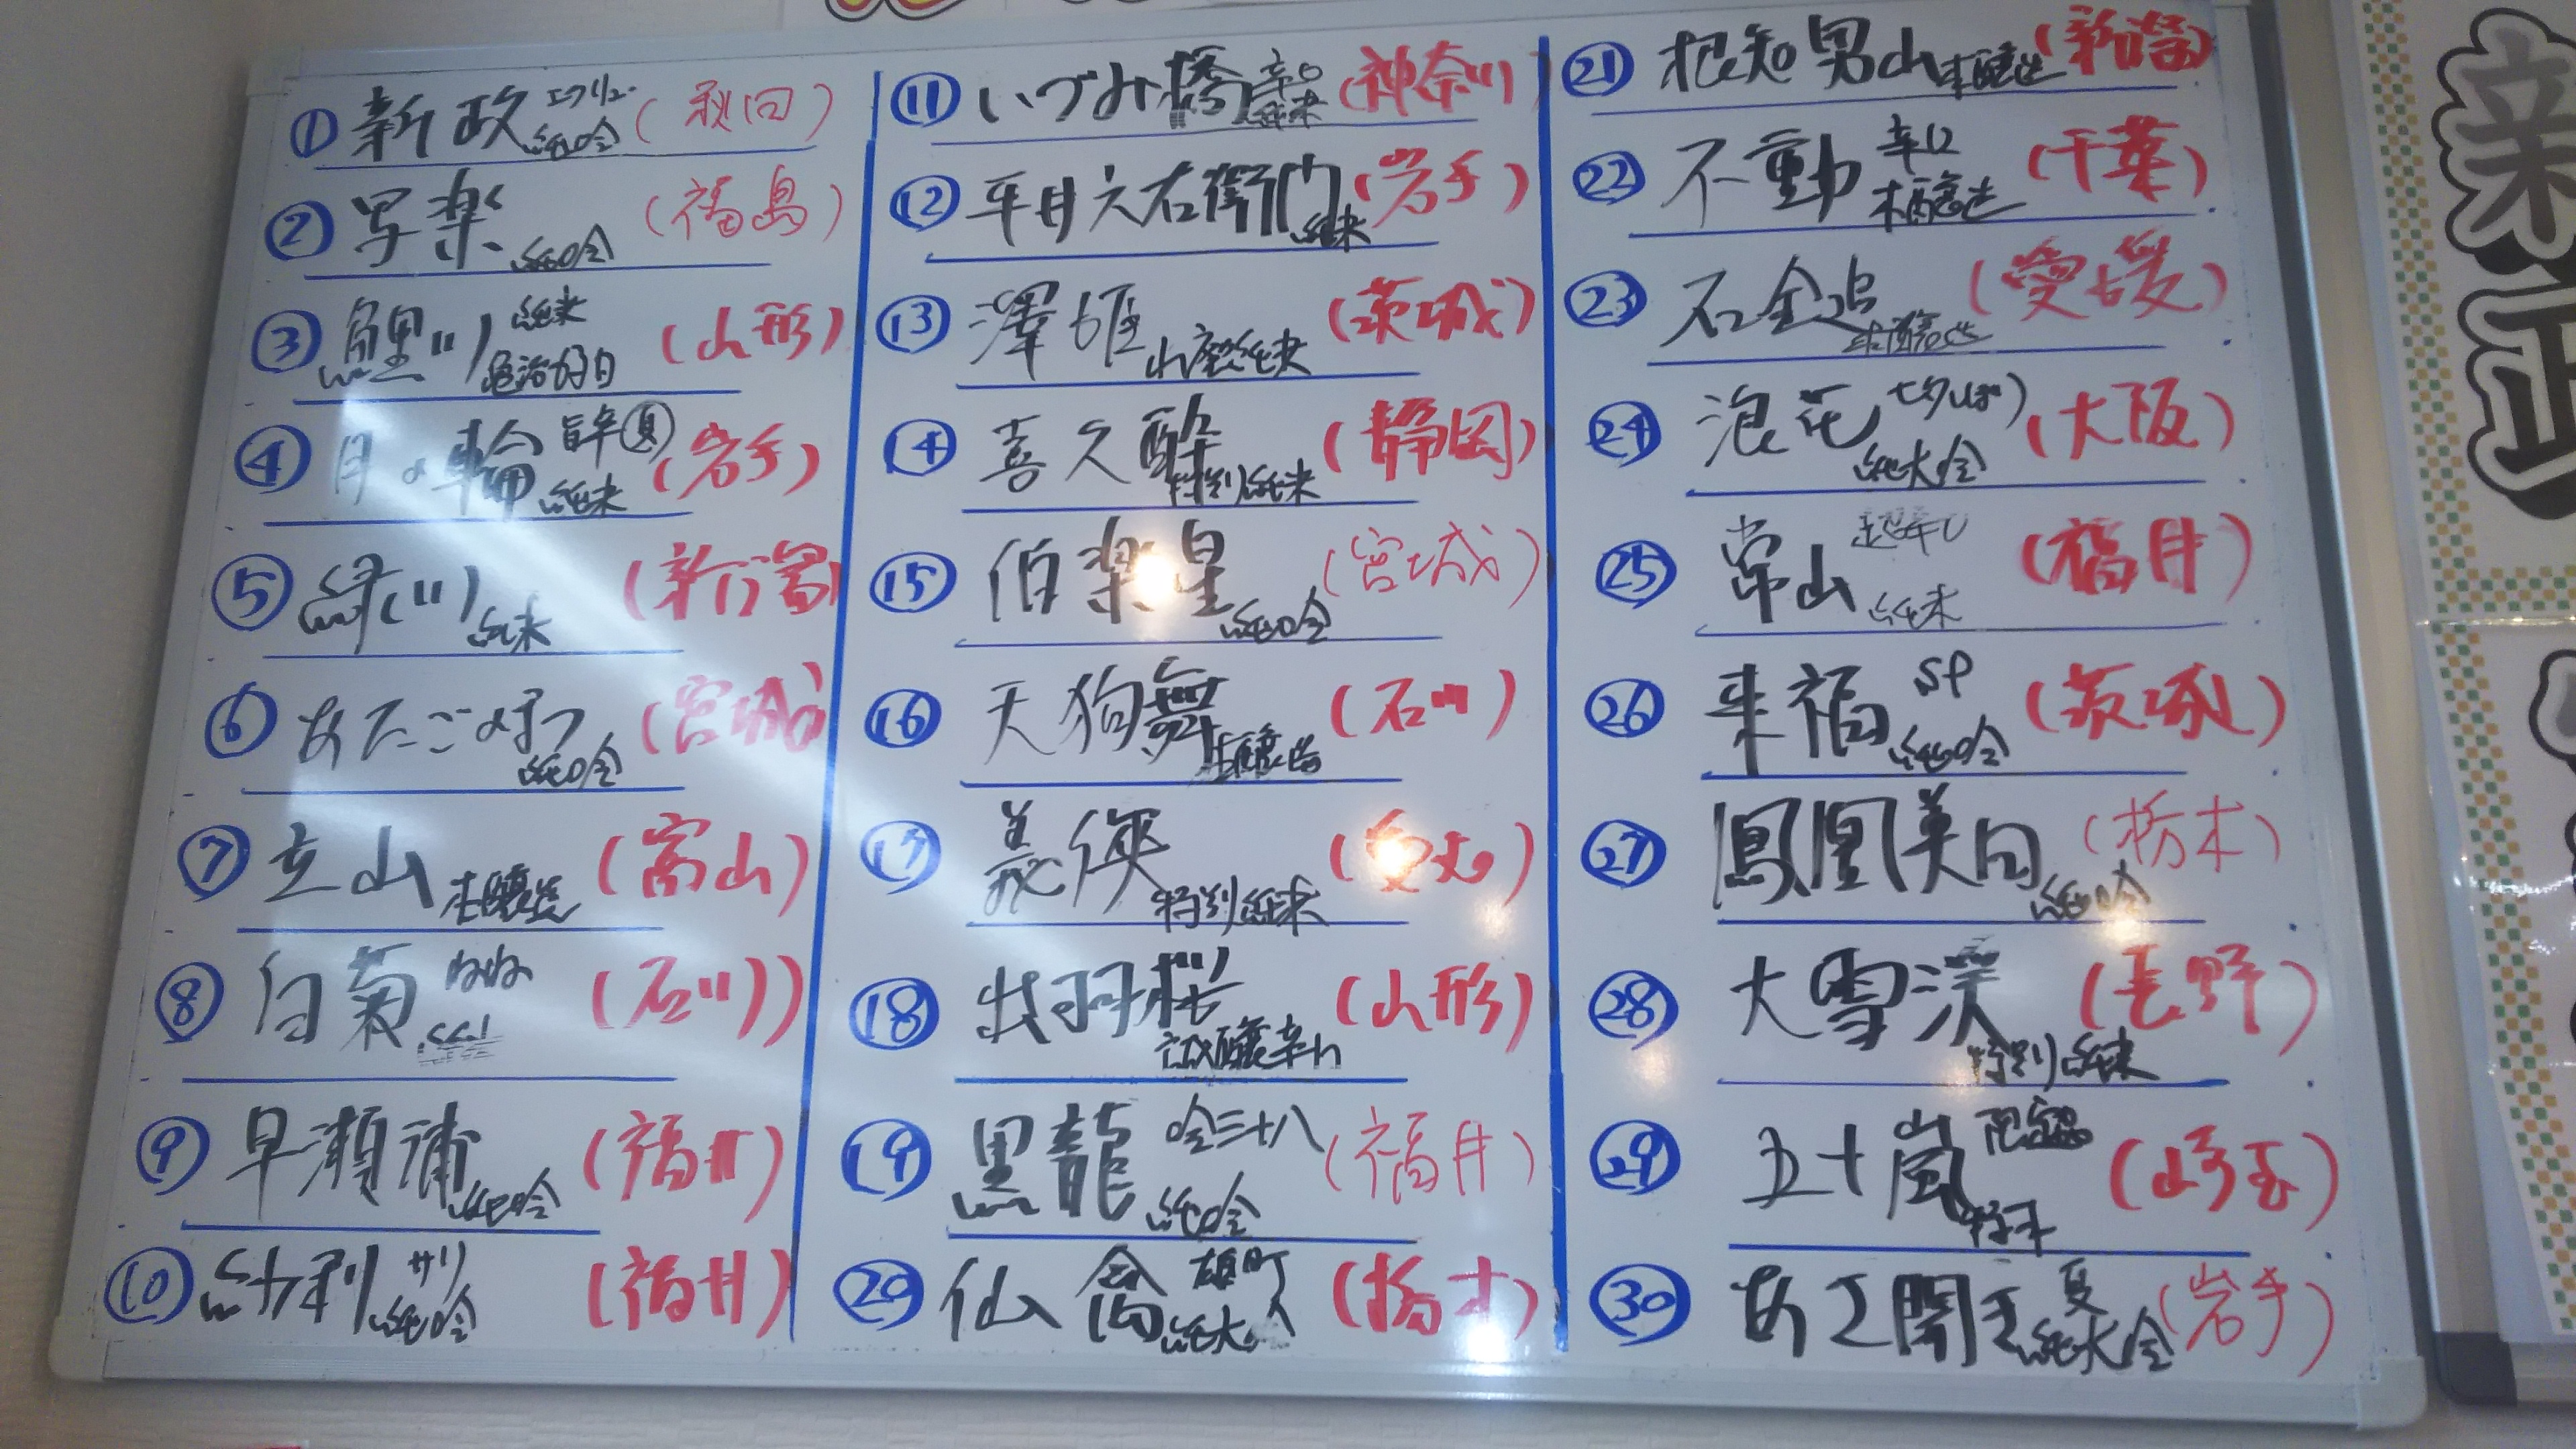 ① 新政 エクリュ 純吟 (秋田)
② 写楽 純吟 (福島)
③ 鯉川 純米 (山形)
④ 月の輪 旨辛 夏 純米 (岩手)
⑤ 緑川 純米 (新潟)
⑥ あたごのまつ 純吟 (宮城)
⑦ 立山 本醸造 (富山)
⑧ 白菊 (石川)
⑨ 早瀬浦 純吟 (福井)
⑩ 紗利 サリ 純吟 (福井)
⑪ いづみ橋 辛口 純米 (神奈川)
⑫ 平井六右衛門 純米 (岩手)
⑬ 澤姫 山廃純米 (茨城)
⑭ 喜久酔 特別純米 (静岡)
⑮ 伯楽星 純吟 (宮城)
⑯ 天狗舞 (石川)
⑰ 義侠 特別純米 (愛知)
⑱ 出羽桜 誠醸辛口 (山形)
⑲ 黒龍 吟三十八 純吟 (福井)
⑳ 仙禽 雄町 純大 (栃木)
㉑ 根知男山 本醸造 (新潟)
㉒ 不動 辛口 本醸造 (千葉)
㉓ 石全追 本醸造 (愛媛)
㉔ 浪花 純大吟 (大阪)
㉕ 常山 超辛口 純米 (福井)
㉖ 来福 SP 純吟 (茨城)
㉗ 鳳凰美田 純吟 (栃木)
㉘ 大雪渓 特別純米 (長野)
㉙ 五十嵐 (埼玉)
㉚ あさ開き 夏 純大吟 (岩手)